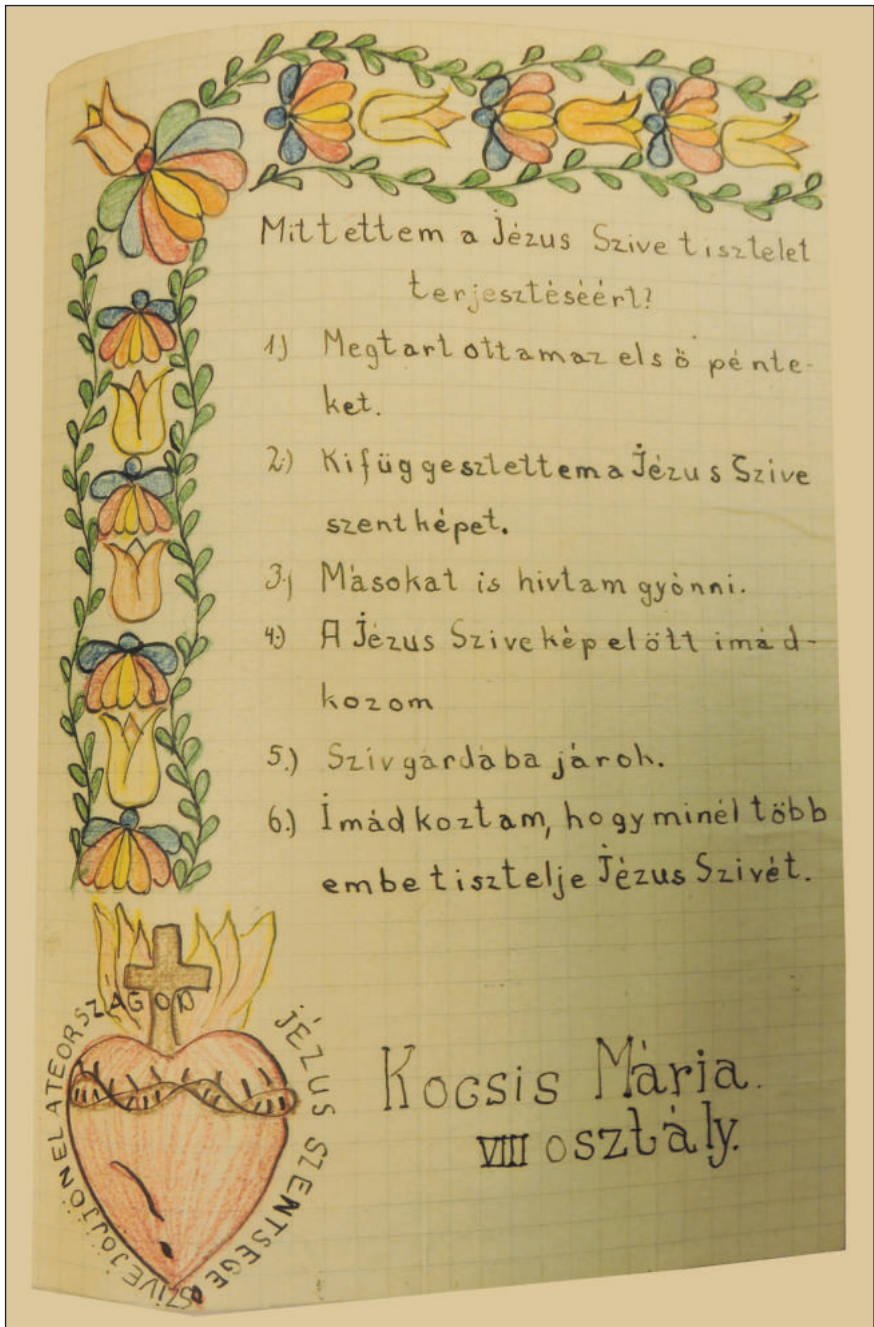 Mit tettem a Jézus Szive tisztelet
terjesztéséért?
1) Megtartottam az első pénte-
ket.
2.) Kifüggesztettem a Jézus Szive
szentképet.
3.) Másokat is hivtam gyónni.
4.) A Jézus Szive kép előtt imád-
kozom
5.) Szívgárdába járok.
6.) Imádkoztam, hogy minél több
embe tisztelje Jézus Szivét.
JÉZUS SZENTSÉGES SZIVE JÖJJÖN EL A TE ORSZÁGOD
Kocsis Mária.
VIII osztály.